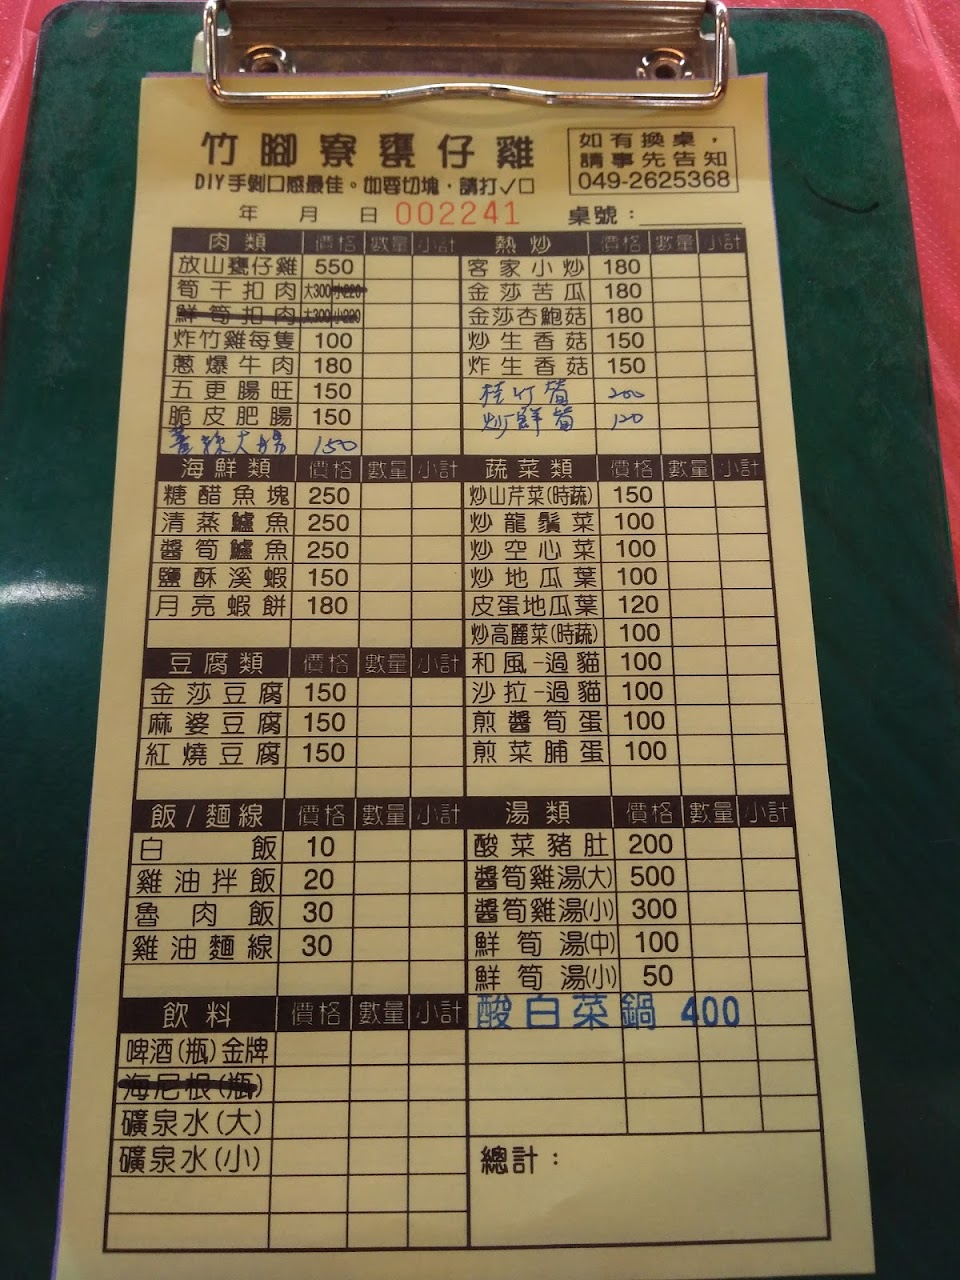 竹腳寮甕仔雞
如有換桌，
請事先告知
049-2625368
DIY手剝口感最佳。如要切塊，請打✓□
年 月 日 002241 桌號：
肉類 價格 數量 小計
放山甕仔雞 550
筍干扣肉 大300 小220
鮮筍扣肉 大300 小220
炸竹雞每隻 100
蔥爆牛肉 180
五更腸旺 150
脆皮肥腸 150
薑絲大腸 150
熱炒 價格 數量 小計
客家小炒 180
金莎苦瓜 180
金莎杏鮑菇 180
炒生香菇 150
炸生香菇 150
桂竹筍 200
炒鮮筍 120
海鮮類 價格 數量 小計
糖醋魚塊 250
清蒸鱸魚 250
醬筍鱸魚 250
鹽酥溪蝦 150
月亮蝦餅 180
蔬菜類 價格 數量 小計
炒山芹菜(時蔬) 150
炒龍鬚菜 100
炒空心菜 100
炒地瓜葉 100
皮蛋地瓜葉 120
炒高麗菜(時蔬) 100
和風-過貓 100
沙拉-過貓 100
煎醬筍蛋 100
煎菜脯蛋 100
豆腐類 價格 數量 小計
金莎豆腐 150
麻婆豆腐 150
紅燒豆腐 150
飯/麵線 價格 數量 小計
白飯 10
雞油拌飯 20
魯肉飯 30
雞油麵線 30
湯類 價格 數量 小計
酸菜豬肚 200
醬筍雞湯(大) 500
醬筍雞湯(小) 300
鮮筍湯(中) 100
鮮筍湯(小) 50
酸白菜鍋 400
飲料 價格 數量 小計
啤酒(瓶)金牌
海尼根(瓶)
礦泉水(大)
礦泉水(小)
總計：